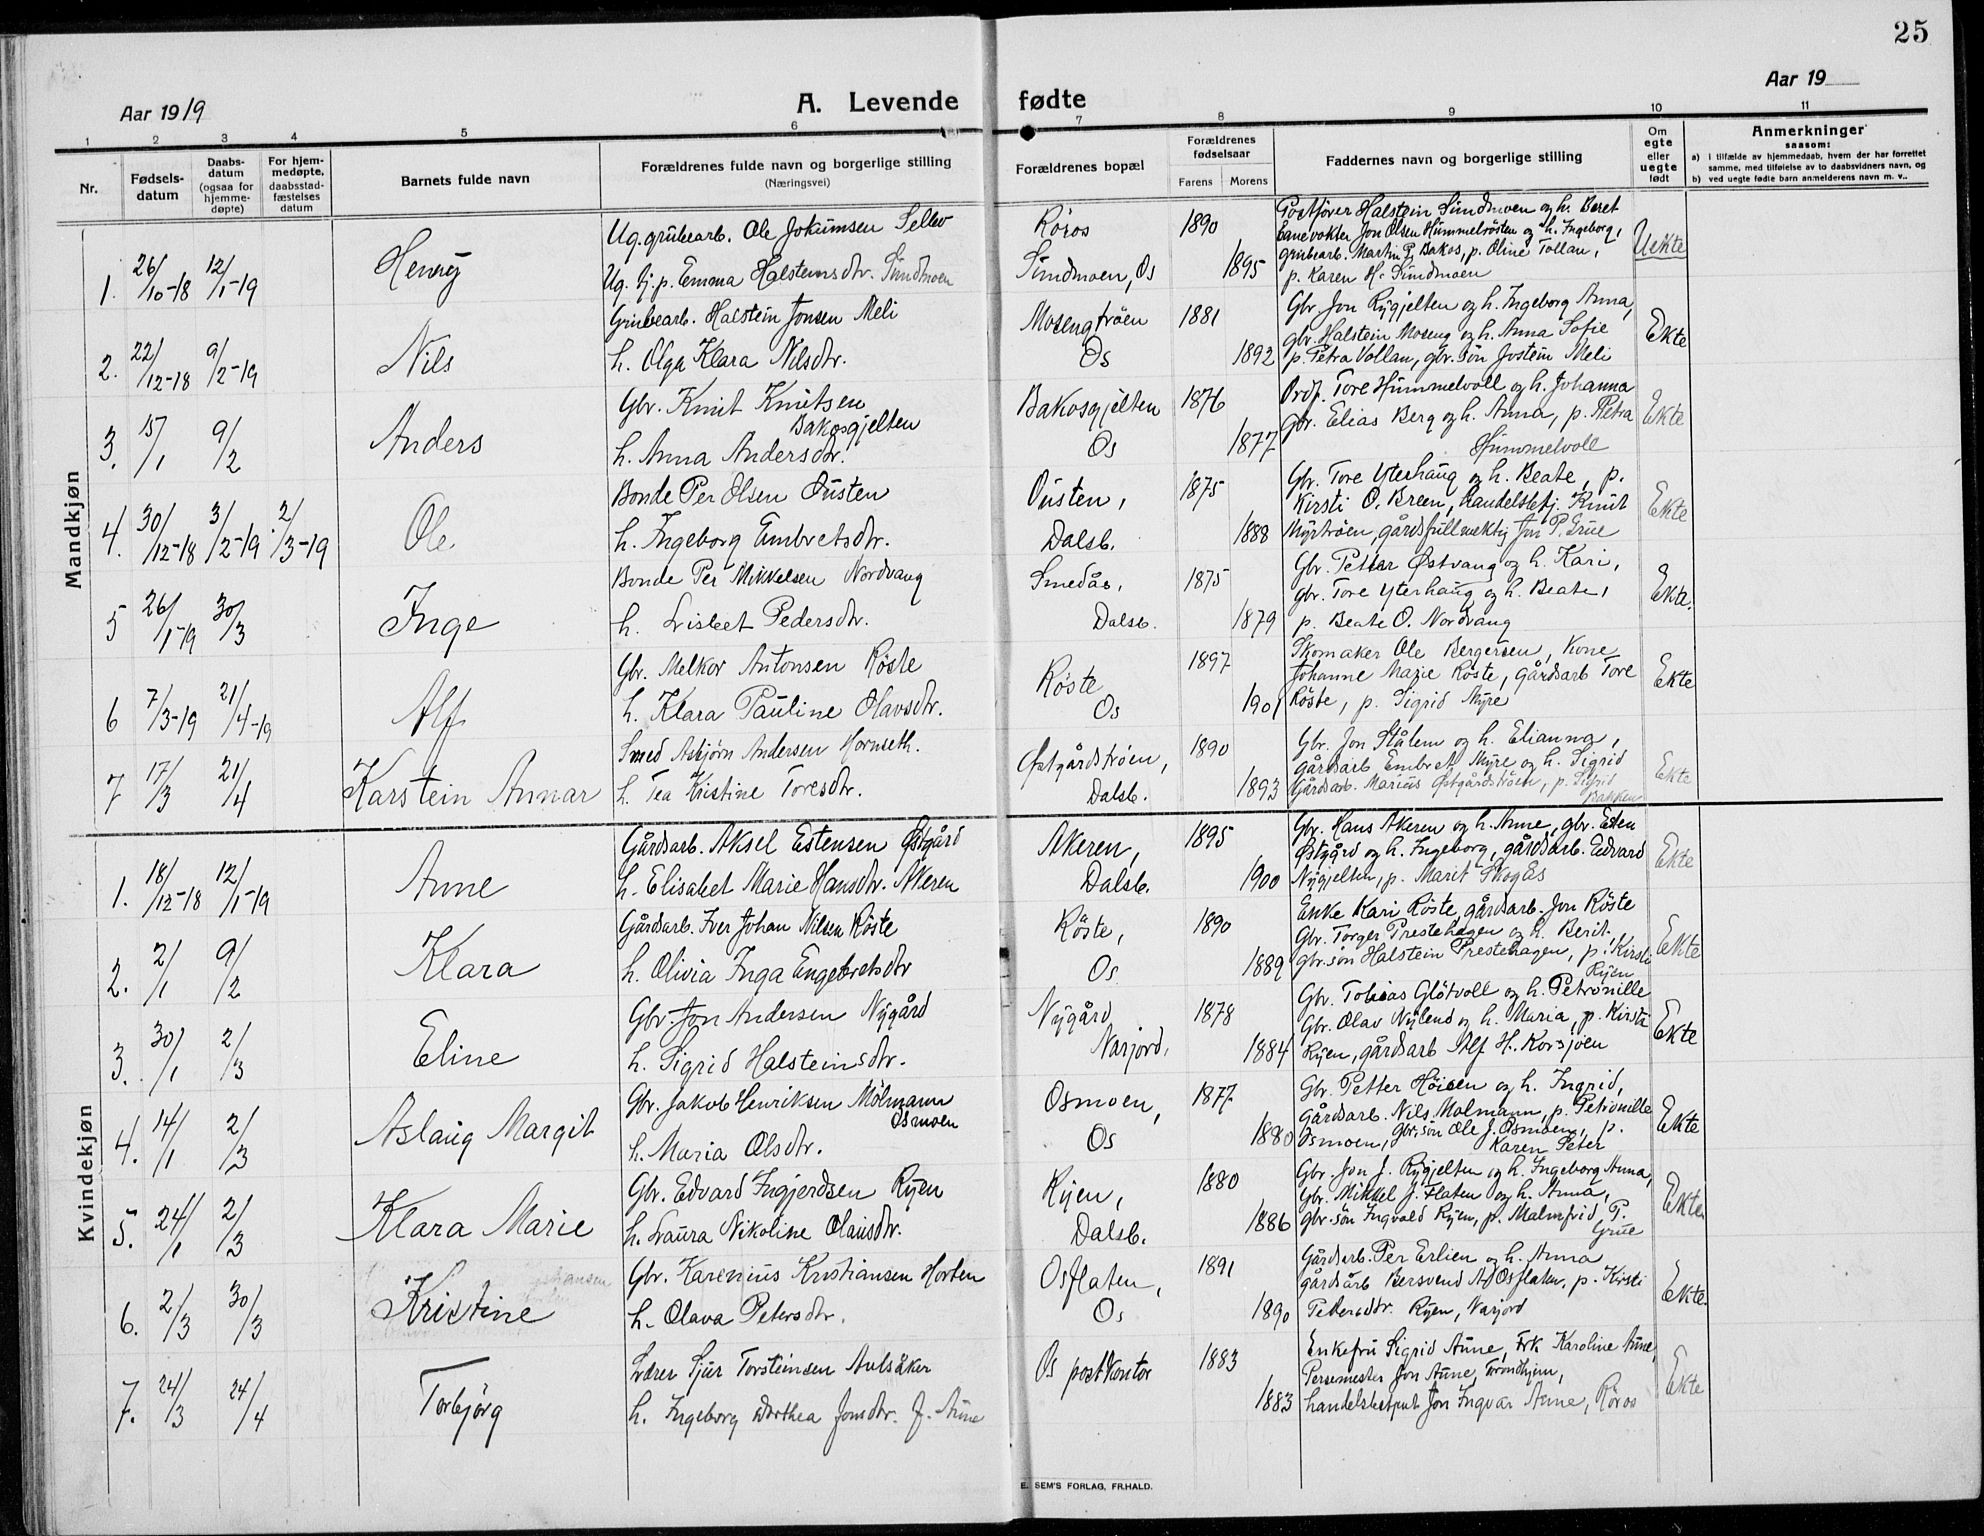 25
Aar 1919
A. Levende fødte
Aar 19
1 2 3 4 5 6 7 8 9 10 11
Nr.
Fødsels-datum
Daabs-datum (ogsaa for hjemme-døpte)
For hjem-medøpte, daabsstad-fæstelses datum
Barnets fulde navn
Forældrenes fulde navn og borgerlige stilling
(Næringsvei)
Forældrenes bopæl
Forældrenes fødselsaar
Farens Morens
Faddernes navn og borgerlige stilling
Om egte eller uegte født
Anmerkninger
saasom:
a) i tilfælde av hjemmedaab, hvem der har forrettet samme, med tilføielse av to daabsvidners navn, og
b) ved uegte fødte barn anmelderens navn m. v..
Mandkjøn
1. 26/10-18 12/1-19 Henry
Ug. grubearb. Ole Jokumsen Sellevo
Ug. tj. p. Emma Halsteinsdtr. Sundmoen
Røros
Sundmoen, Os
1890
1895
Postfører Halstein Sundmoen og h. Beret
banevokter Jon Olsen Hummelvosten og h. Ingeborg,
grubearb. Martin P. Bakos, p. Oline Tollan,
p. Karen H. Sundmoen
Uekte
2. 22/12-18 9/2-19 Nils
Grubearb. Halstein Jonsen Meli
h. Olga Klara Nilsdtr.
Mosengtrøen
Os
1881
1892
Gbr Jon Rygjelten og h. Ingeborg Anna,
gbr. Halstein Moseng og h. Anna Sofie
p. Petra Vollan, gbr. søn Jostein Meli
Ekte
3. 15/1 9/2 Anders
Gbr. Knut Knutsen
Bakosgjelten
h. Anna Andersdtr.
Bakosgjelten
Os
1876
1877
Ordf. Tore Hummelvoll og h. Johanna
Gbr. Elias Berg og h. Anna, p. Petra
Hummelvoll
Ekte
4. 30/12-18 3/2-19 2/3-19 Ole
Bonde Per Olsen Ousten
h. Ingeborg Embretsdtr.
Ousten,
Dalsb.
1875
1888
Gbr. Tore Yterhaug og h. Beate, p.
Kirsti O. Breen, handelsbetj. Knut
Myrtrøen, gårdsfullmektig Jon P. Grue
Ekte
5 26/1-19 30/3 Inge
Bonde Per Mikkelsen Nordvang
h. Lisbet Pedersdtr.
Smedås,
Dalsb.
1875
1879
Gbr. Petter Østvang og h. Kari,
gbr. Tore Yterhaug og h. Beate,
p. Beate O. Nordvang
Ekte.
6 7/3-19 21/4-19 Alf
Gbr. Melkor Antonsen Røste
h. Klara Pauline Olavsdtr.
Røste
Os
1897
1901
Skomaker Ole Bergersen, Kone
Johanne Marie Røste, gårdsarb Tore
Røste, p. Sigrid Myre
Ekte
7 17/3 21/4 Karstein Annar
Smed Asbjørn Andersen Hornseth.
h. Tea Kristine Toresdtr.
Østgårdstrøen,
Dalsb.
1890
1893
Gbr. Jon Stålem og h. Elianna,
gårdsarb Embret Myre og h. Sigrid
Gårdsarb. Marius Østgårdstrøen, p. Sigrid
Bakken
Ekte
Kvindekjøn
1. 18/12-18 12/1-19 Anne
Gårdsarb. Aksel Estensen Østgård
h. Elisabet Marie Hansdtr. Akeren
Akeren,
Dalsb.
1895
1900
Gbr. Hans Akeren og h. Anne, gbr. Esten
Østgård og h. Ingeborg, gårdsarb. Edvard
Nygjelten, p. Marit Skogås
Ekte
2. 2/1 9/2 Klara
Gårdsarb. Iver Johan Nilsen Røste
h. Olivia Inga Engebretsdtr
Røste,
Os
1890
1889
Enke Kari Røste, gårdsarb. Jon Røste
Gbr. Torger Prestehagen og h. Berit,
gbr. søn Halstein Prestehagen, p. Kirsti
Ryen
Ekte
3. 30/1 2/3 Eline
Gbr. Jon Andersen Nygård
h. Sigrid Halsteinsdtr.
Nygård
Narjord,
1878
1884
Gbr. Tobias Gløtvoll og h. Petronille
Gbr. Olav Nylend og h. Maria, p. Kirsta
Ryen, gårdsarb Alf H. Korsjøen
Ekte
4. 14/1 2/3 Aslaug Margit
Gbr. Jakob Henriksen Mølmann
Osmoen
h. Maria Olsdtr.
Osmoen,
Os
1877
1880
Gbr. Petter Høisen og h. Ingrid,
gårdsarb. Nils Molmann, p. Petronille
Osmoen, Gbr. søn Ole J. Osmoen, p.
Karen Peter
Ekte
5. 24/1 2/3 Klara Marie
Gbr. Edvard Ingjerdsen Ryen
h. Laura Nikoline Olausdtr.
Ryen,
Dalsb.
1880
1886
Gbr. Jon J. Rygjelten og h. Ingeborg Anna,
Gbr. Mikkel J. Flaten og h. Anna,
gbr. søn Ingvald Ryen, p. Malmfrid P.
Grue
Ekte
6. 2/3 30/3 Kristine
Gbr. Karenius Kristiansen Horten
h. Olava Petersdtr.
Osflaten,
Os
1891
1890
Gårdarb. Per Erlien og h. Anna
gårdsarb Bersvend A. Osflaten, p. Kirsti
Pedersdtr. Ryen, Narjord
Ekte.
7. 24/3 24/4 Torbjörg
Lærer Sjur Torsteinsen Aulsåker
h. Ingeborg Dorthea Jonsdtr. f. Aune
Os postkontor
1883
1883
Enkefru Sigrid Aune, Frk Karoline Aune,
Persemester Jon Aune, Trondhjem,
handelsbetjent Jon Ingvar Aune, Røros
Ekte
E. SEM'S FORLAG, FR.HALD.